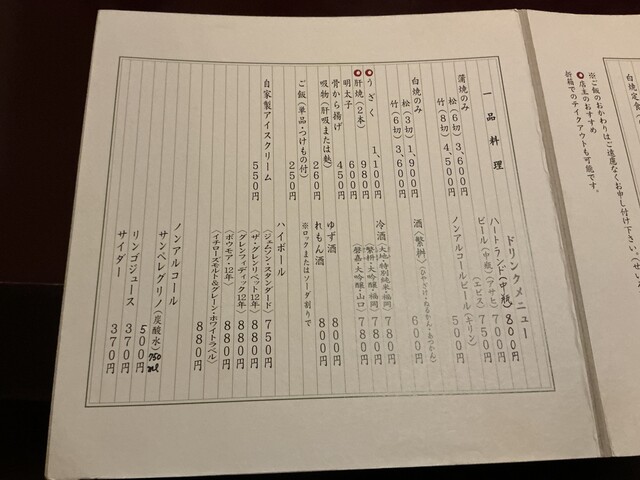 白焼定食
※ご飯のおかわりはご遠慮なくお申し付け下さい。
店主のおすすめ
折箱でのテイクアウトも可能です。
一品料理
蒲焼のみ
松(6切) 3,600円
竹(8切) 4,500円
白焼のみ
松(3切) 1,900円
竹(6切) 3,600円
うざく 1,100円
肝焼(2本) 980円
明太子 600円
骨から揚げ 450円
吸物(肝吸または麩) 260円
ご飯(単品・つけもの付) 250円
自家製アイスクリーム 550円
ドリンクメニュー
ハートランド(中瓶) 800円
ビール(中瓶)(アサヒ) 700円
(エビス) 750円
ノンアルコールビール(キリン) 500円
酒(繁桝)(ひやざけ・ぬるかん・あつかん) 600円
冷酒(大地・特別純米・福岡) 780円
(繁桝・大吟醸・福岡) 780円
(・大吟醸・山口) 780円
ゆず酒 800円
れもん酒 800円
※ロックまたはソーダ割りで
ハイボール
(ジェムソン・スタンダード) 750円
(ザ・グレンリベット12年) 880円
(グレンフィディック12年) 880円
(ボウモア・12年) 880円
(イチローズモルト&グレーン・ホワイトラベル) 880円
ノンアルコール
サンペレグリノ(炭酸水) 750ml 500円
リンゴジュース 370円
サイダー 370円